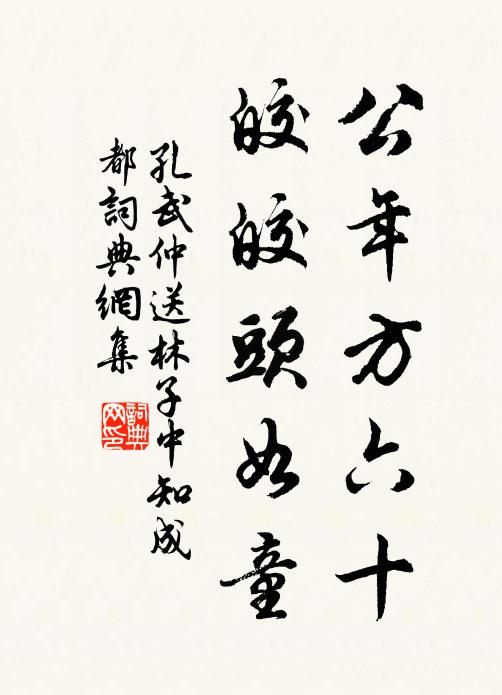 公年方六十
皎皎頭如童
孔武仲送林子中知成
都詞典網集
詞典
网印